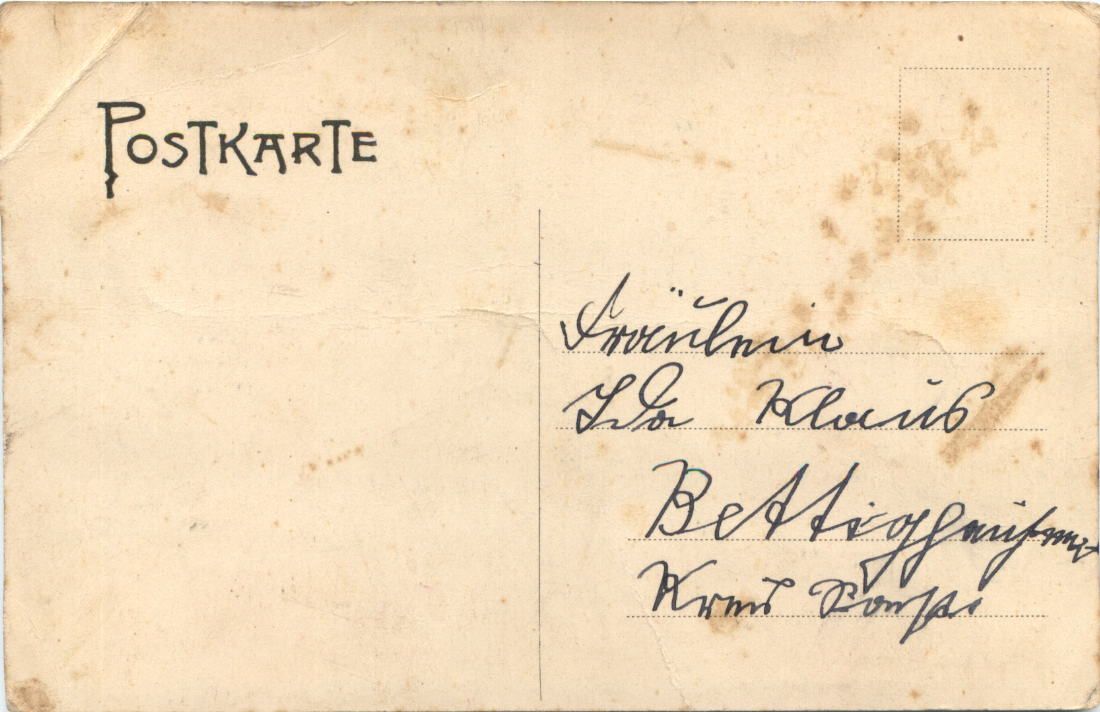 POSTKARTE
Fräulein
Ida Klaus
Bettinghausen
Kreis Soest